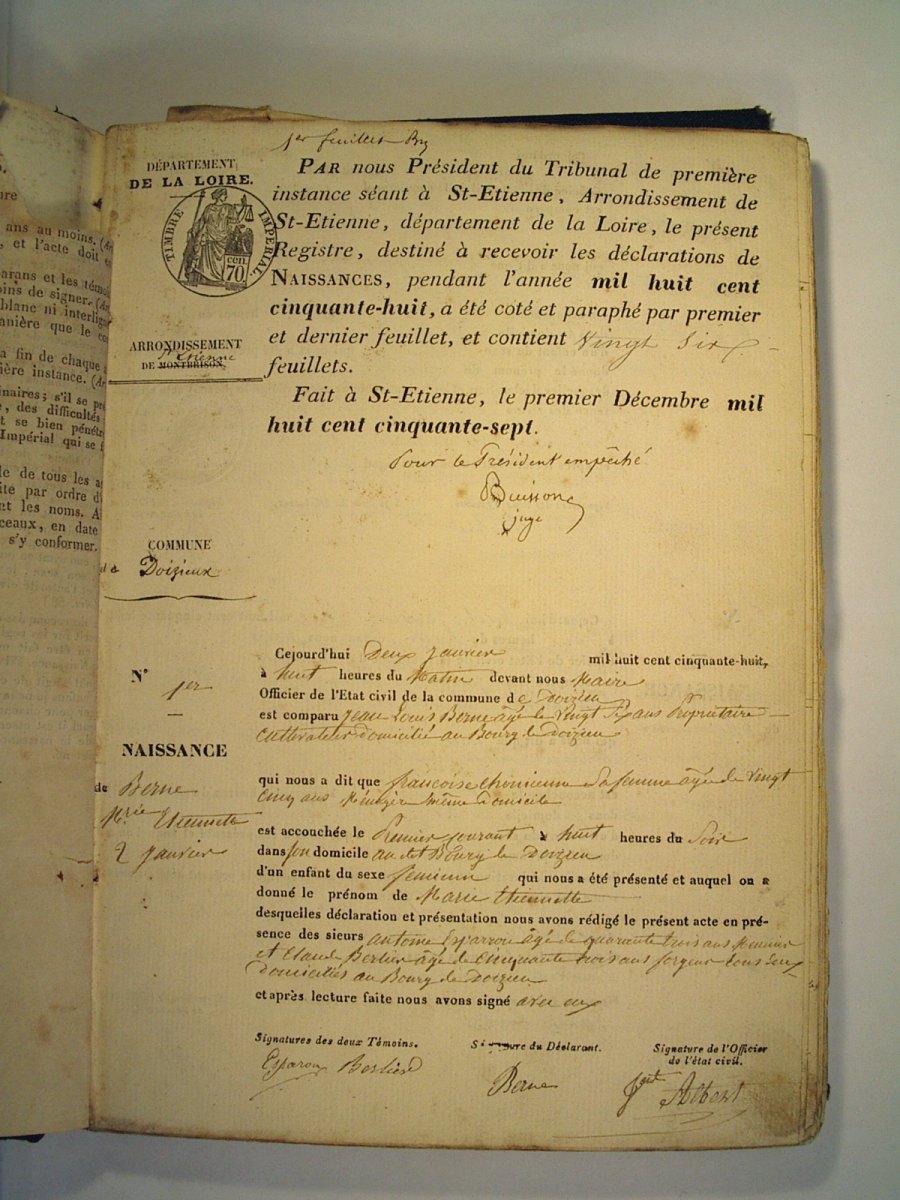 1er feuillet
DÉPARTEMENT
DE LA LOIRE.
TIMBRE IMPÉRIAL
cen.
70
ARRONDISSEMENT
St Etienne
DE MONTBRISON.
PAR nous Président du Tribunal de première
instance séant à St-Etienne, Arrondissement de
St-Etienne, département de la Loire, le présent
Registre, destiné à recevoir les déclarations de
NAISSANCES, pendant l'année mil huit cent
cinquante-huit, a été coté et paraphé par premier
et dernier feuillet, et contient Vingt Six
feuillets.
Fait à St-Etienne, le premier Décembre mil
huit cent cinquante-sept.
Pour le Président empêché
Buisson
juge
COMMUNE
d de Doizieux
N°
1er
NAISSANCE
de Berne
Mrie Etiennette
2 Janvier
Cejourd'hui Deux Janvier mil huit cent cinquante-huit,
à huit heures du Matin devant nous Maire
Officier de l'Etat civil de la commune de Doizieu
est comparu Jean Louis Berne âgé de vingt Six ans Propriétaire
Cultivateur domicilié au Bourg de Doizieu
qui nous a dit que françoise Sa femme âgée de Vingt
Cinq ans Ménagère même domicile
est accouchée le Premier courant à huit heures du Soir
dans son domicile au dit Bourg de Doizieu
d'un enfant du sexe féminin qui nous a été présenté et auquel on a
donné le prénom de Marie Etiennette
desquelles déclaration et présentation nous avons rédigé le présent acte en pré-
sence des sieurs antoine Esparron âgé de quarante trois ans Meunier
et Claude Berlier âgé de Cinquante trois ans forgeur tous deux
domiciliés au Bourg de Doizieu
et après lecture faite nous avons signé avec eux
Signatures des deux Témoins.
Signature du Déclarant.
Signature de l'Officier
de l'état civil.
Esparon Berlier
Berne
Albert
ans au moins. (Ar
, et l'acte doit
arans et les témo
oins de signer. (A
blanc ni interlig
anière que le co
a fin de chaque
ière instance. (Ar
naires; s'il se pré
, des difficultés
t se bien pénétr
Impérial qui se f
le de tous les a
ite par ordre d
nt les noms. A
ceaux, en date
s'y conformer.